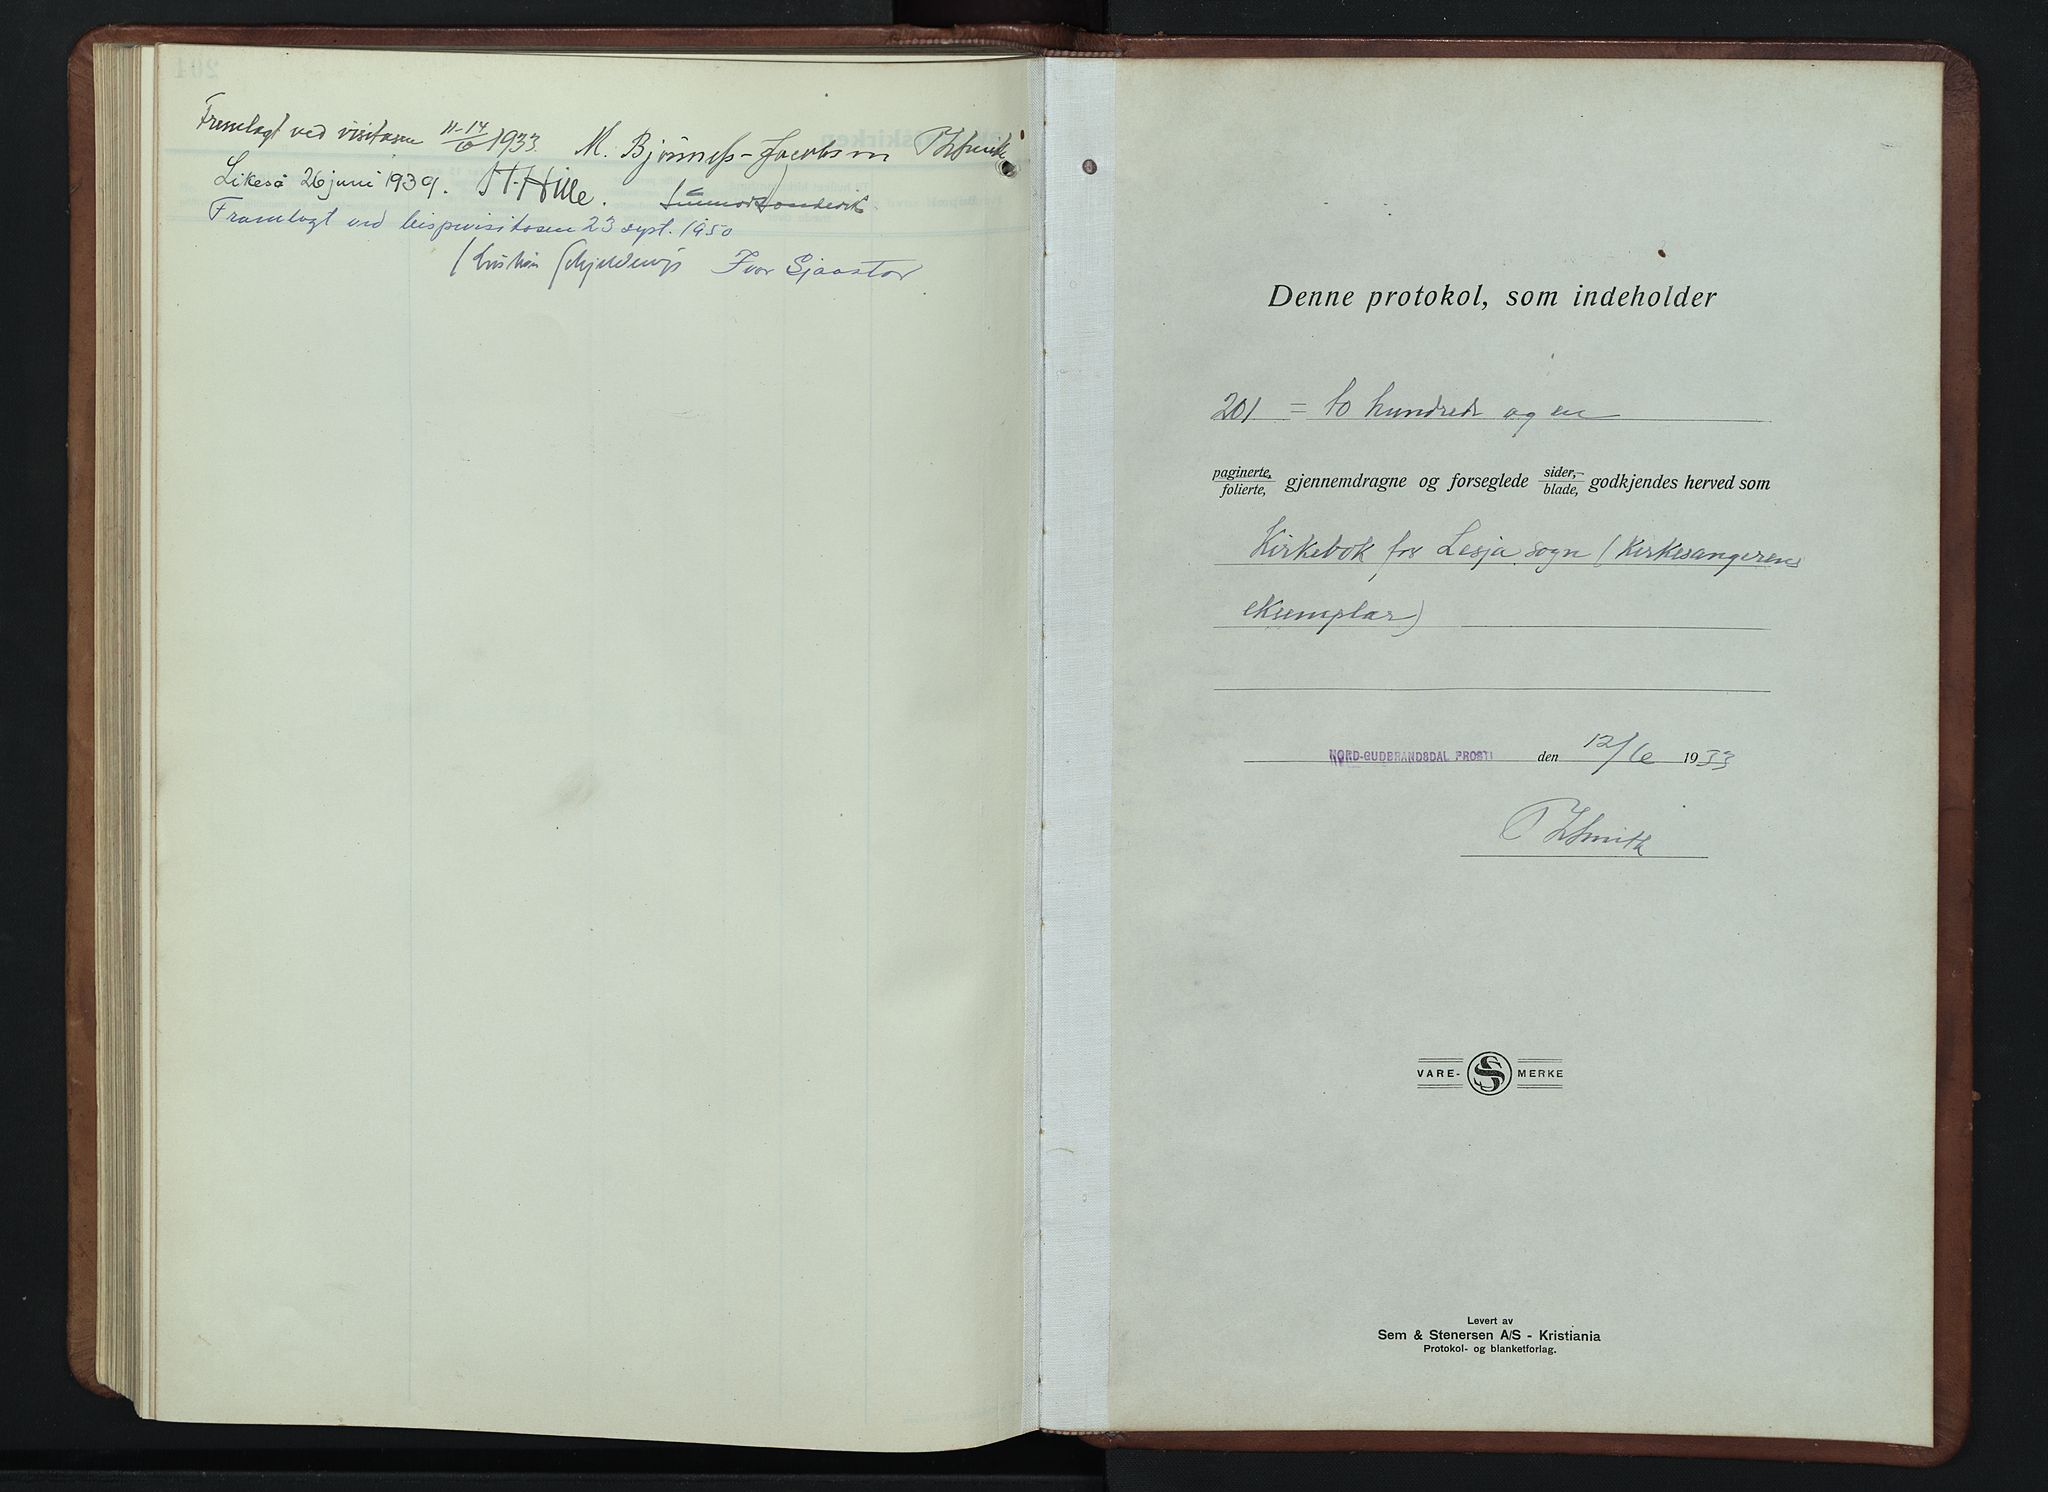 Fremlagt ved visitasen 11-14/6 1933 M. Bjönness-Jacobsen
Likeså 26 juni 1939. H. Hille.
Framlagt ved bispevisitasen 23 sept. 1950
Kristian Schjelderup Ivar Sjaastad
Denne protokol, som indeholder
201 = to hundrede og en
paginerte, folierte, gjennemdragne og forseglede sider,- blade, godkjendes herved som
Kirkebok for Lesja sogn (Kirkesangerens
eksemplar)
NORD-GUDBRANDSDAL PROSTI den 12/6 1933
Smith
VARE- S MERKE
Levert av
Sem & Stenersen A/S - Kristiania
Protokol- og blanketforlag.